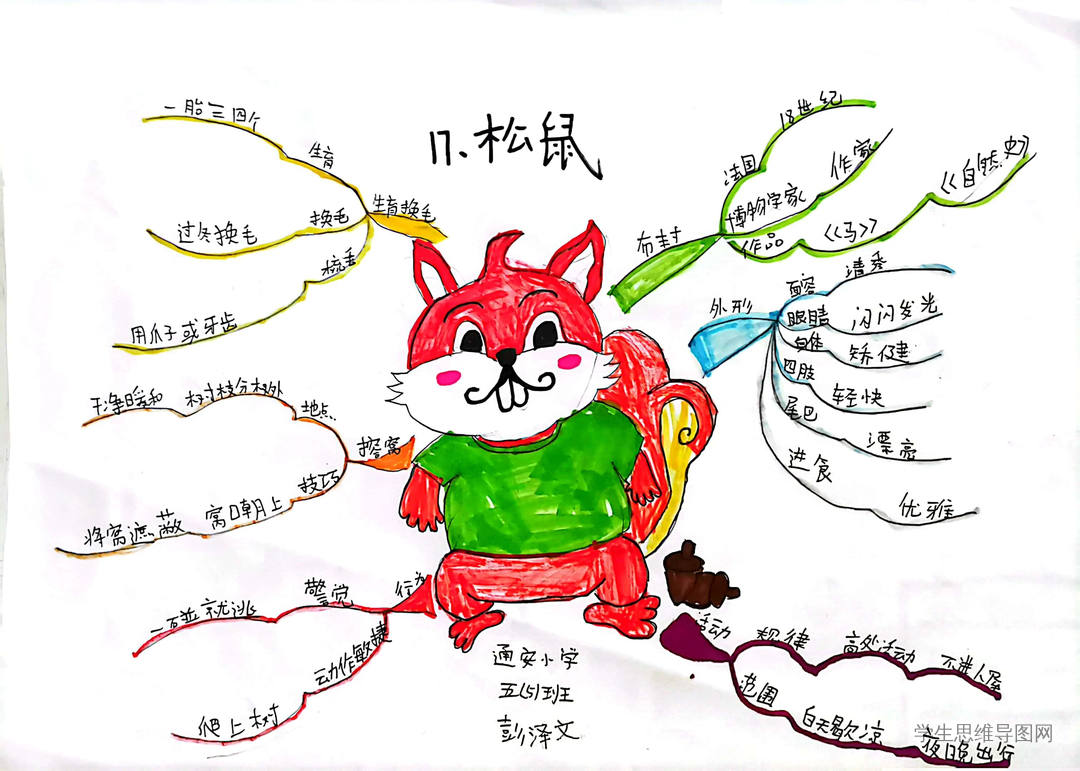 17.松鼠
布封
法国
18世纪
博物学家
作家
作品
《马》
《自然史》
外形
面容
清秀
眼睛
闪闪发光
身体
矫健
四肢
轻快
尾巴
漂亮
进食
优雅
活动
规律
高处活动
不进人屋
范围
白天歇凉
夜晚出行
生育换毛
生育
一胎三四个
换毛
过冬换毛
梳毛
用爪子或牙齿
搭窝
地点
树枝分杈外
干净暖和
技巧
窝口朝上
将窝遮蔽
行为
警觉
一石並就逃
动作敏捷
爬上树
通安小学
五(5)班
彭泽文
学生思维导图网